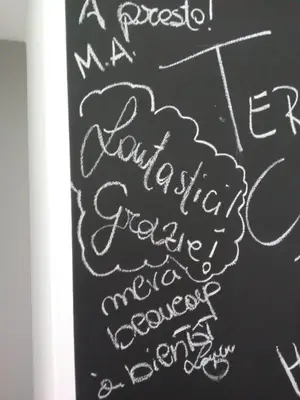 A presto!
M.A.
TER
C
Fantastici!
Grazie!
merci
beaucoup
à bientôt
H